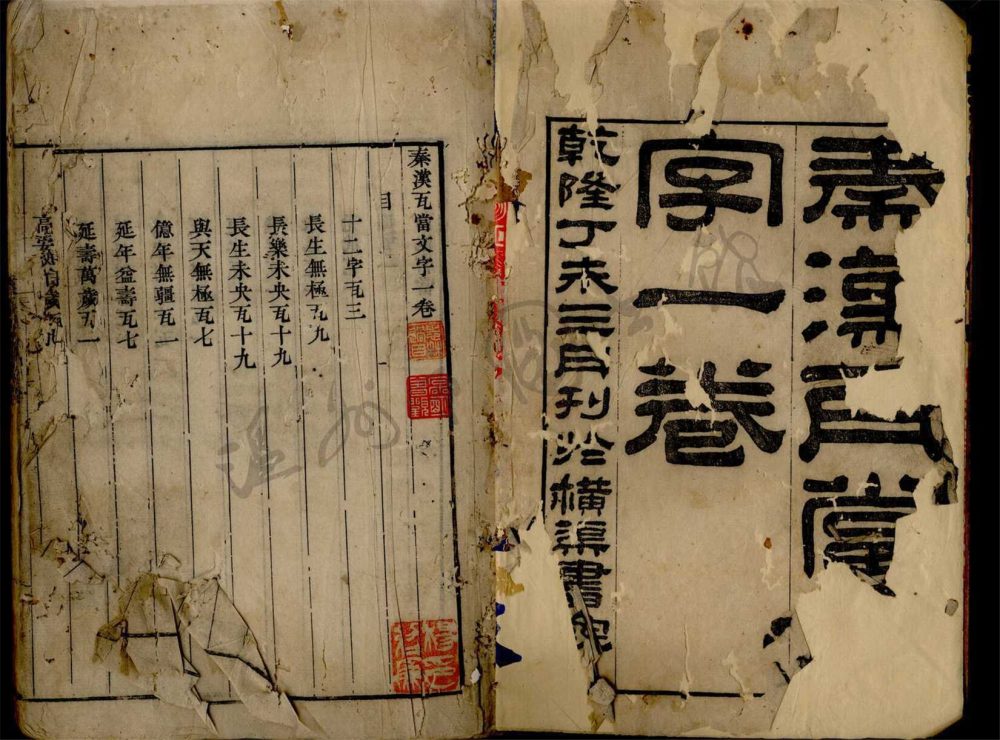 秦漢瓦當
字一卷
乾隆丁未三月刊於橫渠書院
秦漢瓦當文字一卷
目
十二字瓦三
長生無極瓦九
長樂未央瓦十九
長生未央瓦十九
與天無極瓦七
億年無疆瓦一
延年益壽瓦七
延壽萬歲瓦一
高安萬世瓦九